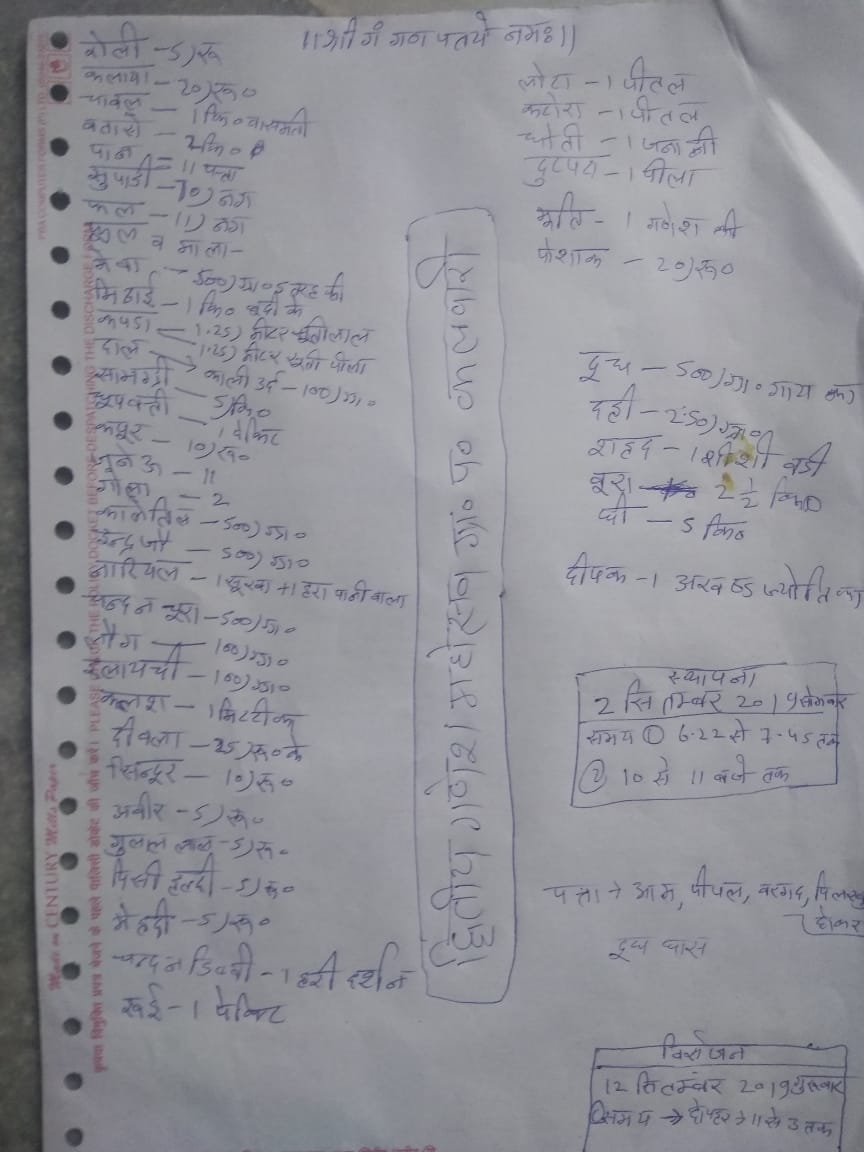 ।।श्री गं गन पतये नमः।।
रोली -5)रू
कलावा - 20)रू०
चावल - 1 कि० वासमती
बतासे - 2 कि०
पान = 11 पत्ता
सुपाडी - 10) नग
फल - 11) नग
फूल व माला-
मेवा - 500)ग्रा० 5 तरह की
मिठाई - 1 कि०
कपडा - 1.25) मीटर सूती लाल
1.25) मीटर सूती पीला
दाल - काली उर्द - 100)ग्रा०
सामग्री - 5)कि०
धूपवत्ती - 1 पेकिट
कपूर - 10)रू०
जनेऊ - 11
गोला - 2
कालेतिल - 500)ग्रा०
इन्द्रजौ - 500)ग्रा०
नारियल - 1 सूखा + 1 हरा पानी वाला
चन्दन चूरा - 500)ग्रा०
लौंग - 100)ग्रा०
इलायची - 100)ग्रा०
कलश - 1 मिटटी का
दीवला - 25)रू० के
सिन्दूर - 10)रू०
अवीर - 5)रू०
गुलाल लाल - 5)रू०
पिसी हल्दी - 5)रू०
मेहदी - 5)रू०
चन्दन डिब्बी - 1 हरी दर्शन
रूई - 1 पेकिट
द्वितीय गणेश महोत्सव
लोटा - 1 पीतल
कटोरा - 1 पीतल
धोती - 1 जनानी
दुपटटा - 1 पीला
मूर्ति - 1 गणेश की
पोशाक - 20)रू०
दूध - 500)ग्रा० गाय का
दही - 250)ग्रा०
शहद - 1 शीशी बडी
बूरा - 2 1/2 कि०
घी - 5 कि०
दीपक - 1 अखण्ड ज्योति का
स्थापना
2 सितम्बर 2019 सोमवार
समय ① 6.22 से 7.45 तक
② 10 से 11 बजे तक
पत्ता → आम, पीपल, बरगद, पिलखु
दूध घास
विसर्जन
12 सितम्बर 2019 गुरुवार
समय → दोपहर → 11 से 3 तक
Made on CENTURY Maths Paper